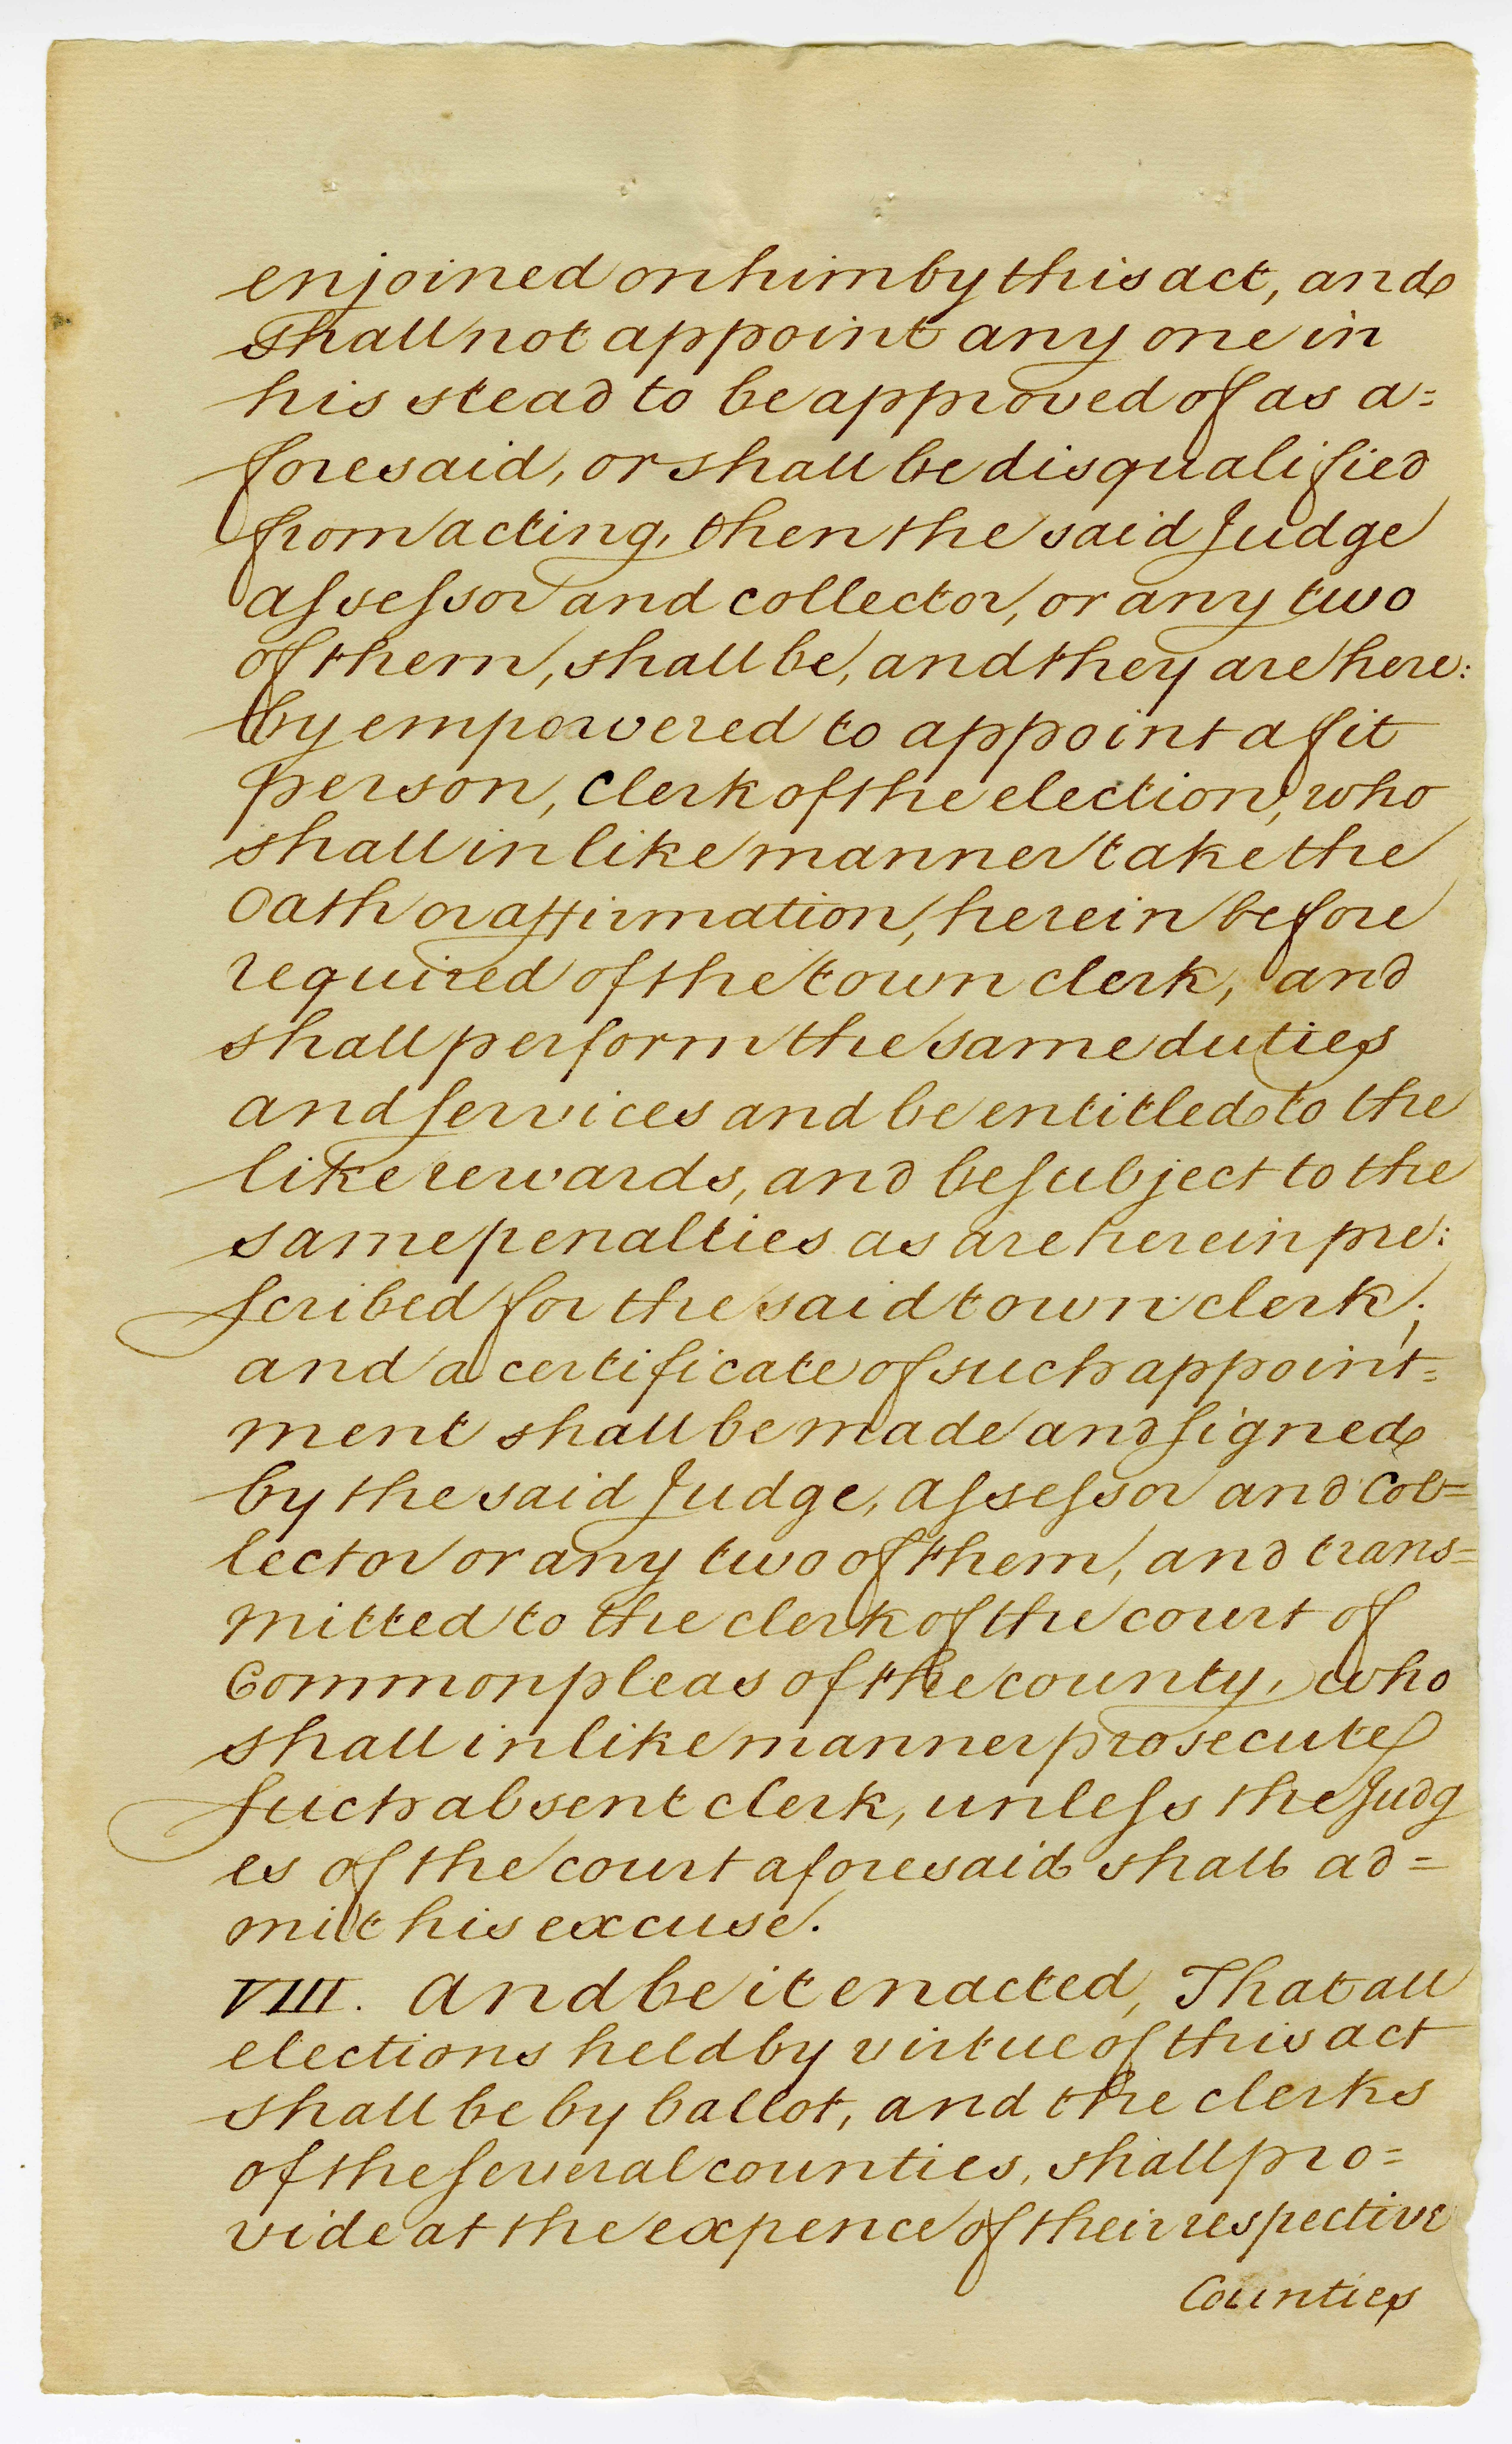 enjoined on him by this act, and
shall not appoint any one in
his stead to be approved of as a=
foresaid, or shall be disqualified
from acting, then the said Judge
aſseſsor and collector, or any two
of them, shall be, and they are here:
by empowered to appoint a fit
person, Clerk of the election, who
shall in like manner take the
Oath or affirmation, herein before
required of the town clerk, and
shall perform the same duties
and ſervices and be entitled to the
like rewards, and be ſubject to the
same penalties as are herein pre:
ſcribed for the said town clerk;
and a certificate of such appoint=
ment shall be made and ſigned
by the said Judge, aſseſsor and Col=
lector or any two of them, and trans=
mitted to the clerk of the court of
Common pleas of the county, who
shall in like manner prosecute
ſuch absent clerk, unleſs the Judg
es of the court aforesaid shall ad=
mit his excuse.
VIII. And be it enacted, That all
elections held by virtue of this act
shall be by ballot, and the clerks
of the ſeveral counties, shall pro=
vide at the expence of their respective
Counties